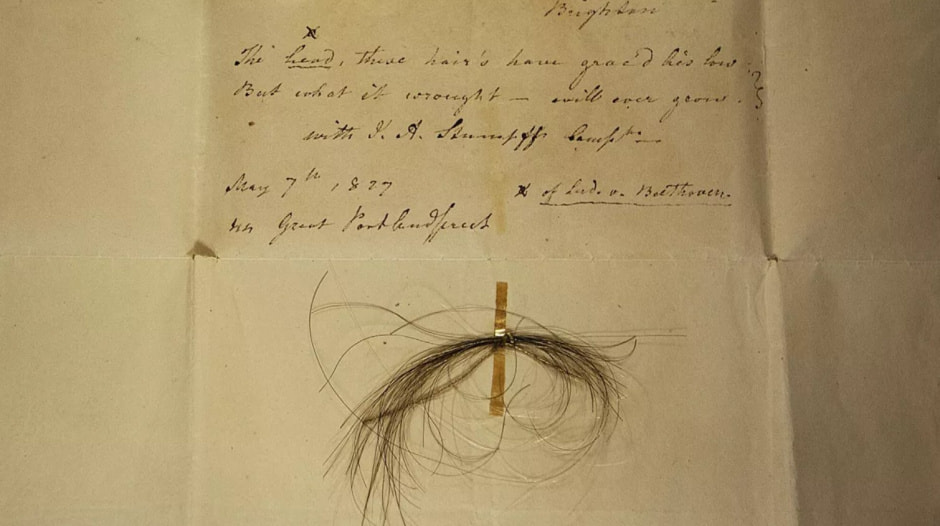 Brighton
x
The head, these hair's have grac'd lies low
But what it wrought — will ever grow.
with J. A. Stumpff's Compts —
May 7th, 1827 x of Lud. v. Beethoven.
44 Great Portland Street